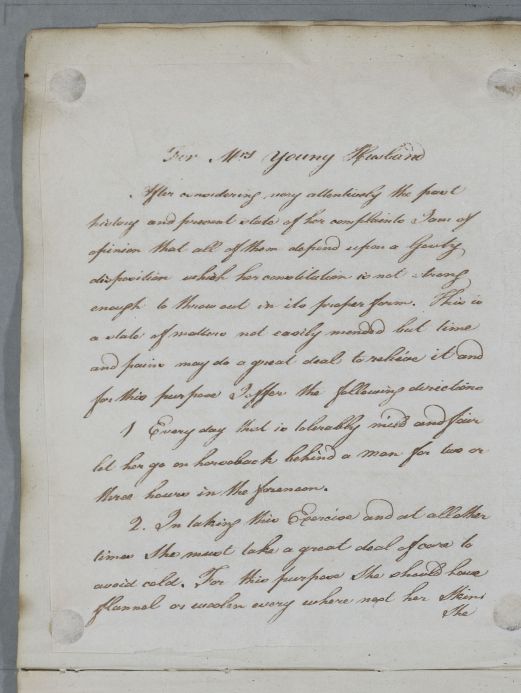 For Mrs Young Husband
After considering very attentively the past
history and present state of her complaints I am of
opinion that all of them depend upon a Gouty
disposition which her constitution is not strong
enough to throw out in its proper form. This is
a state of matters not easily mended but time
and pains may do a great deal to relieve it and
for this purpose I offer the following directions
1 Every day that is tolerably mild and fair
let her go on horseback behind a man for two or
three hours in the forenoon.
2. In taking this Exercise and at all other
times She must take a great deal of care to
avoid cold. For this purpose She should have
flannel or woolen every where next her Skin
She